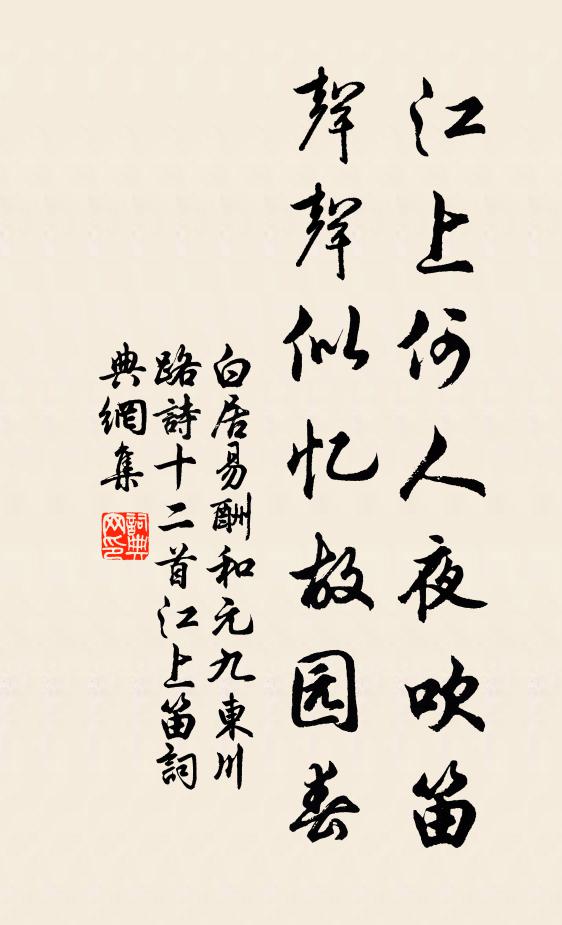 江上何人夜吹笛
聲聲似忆故园春
白居易酬和元九東川
路詩十二首江上笛詞
典網集
詞典
网印